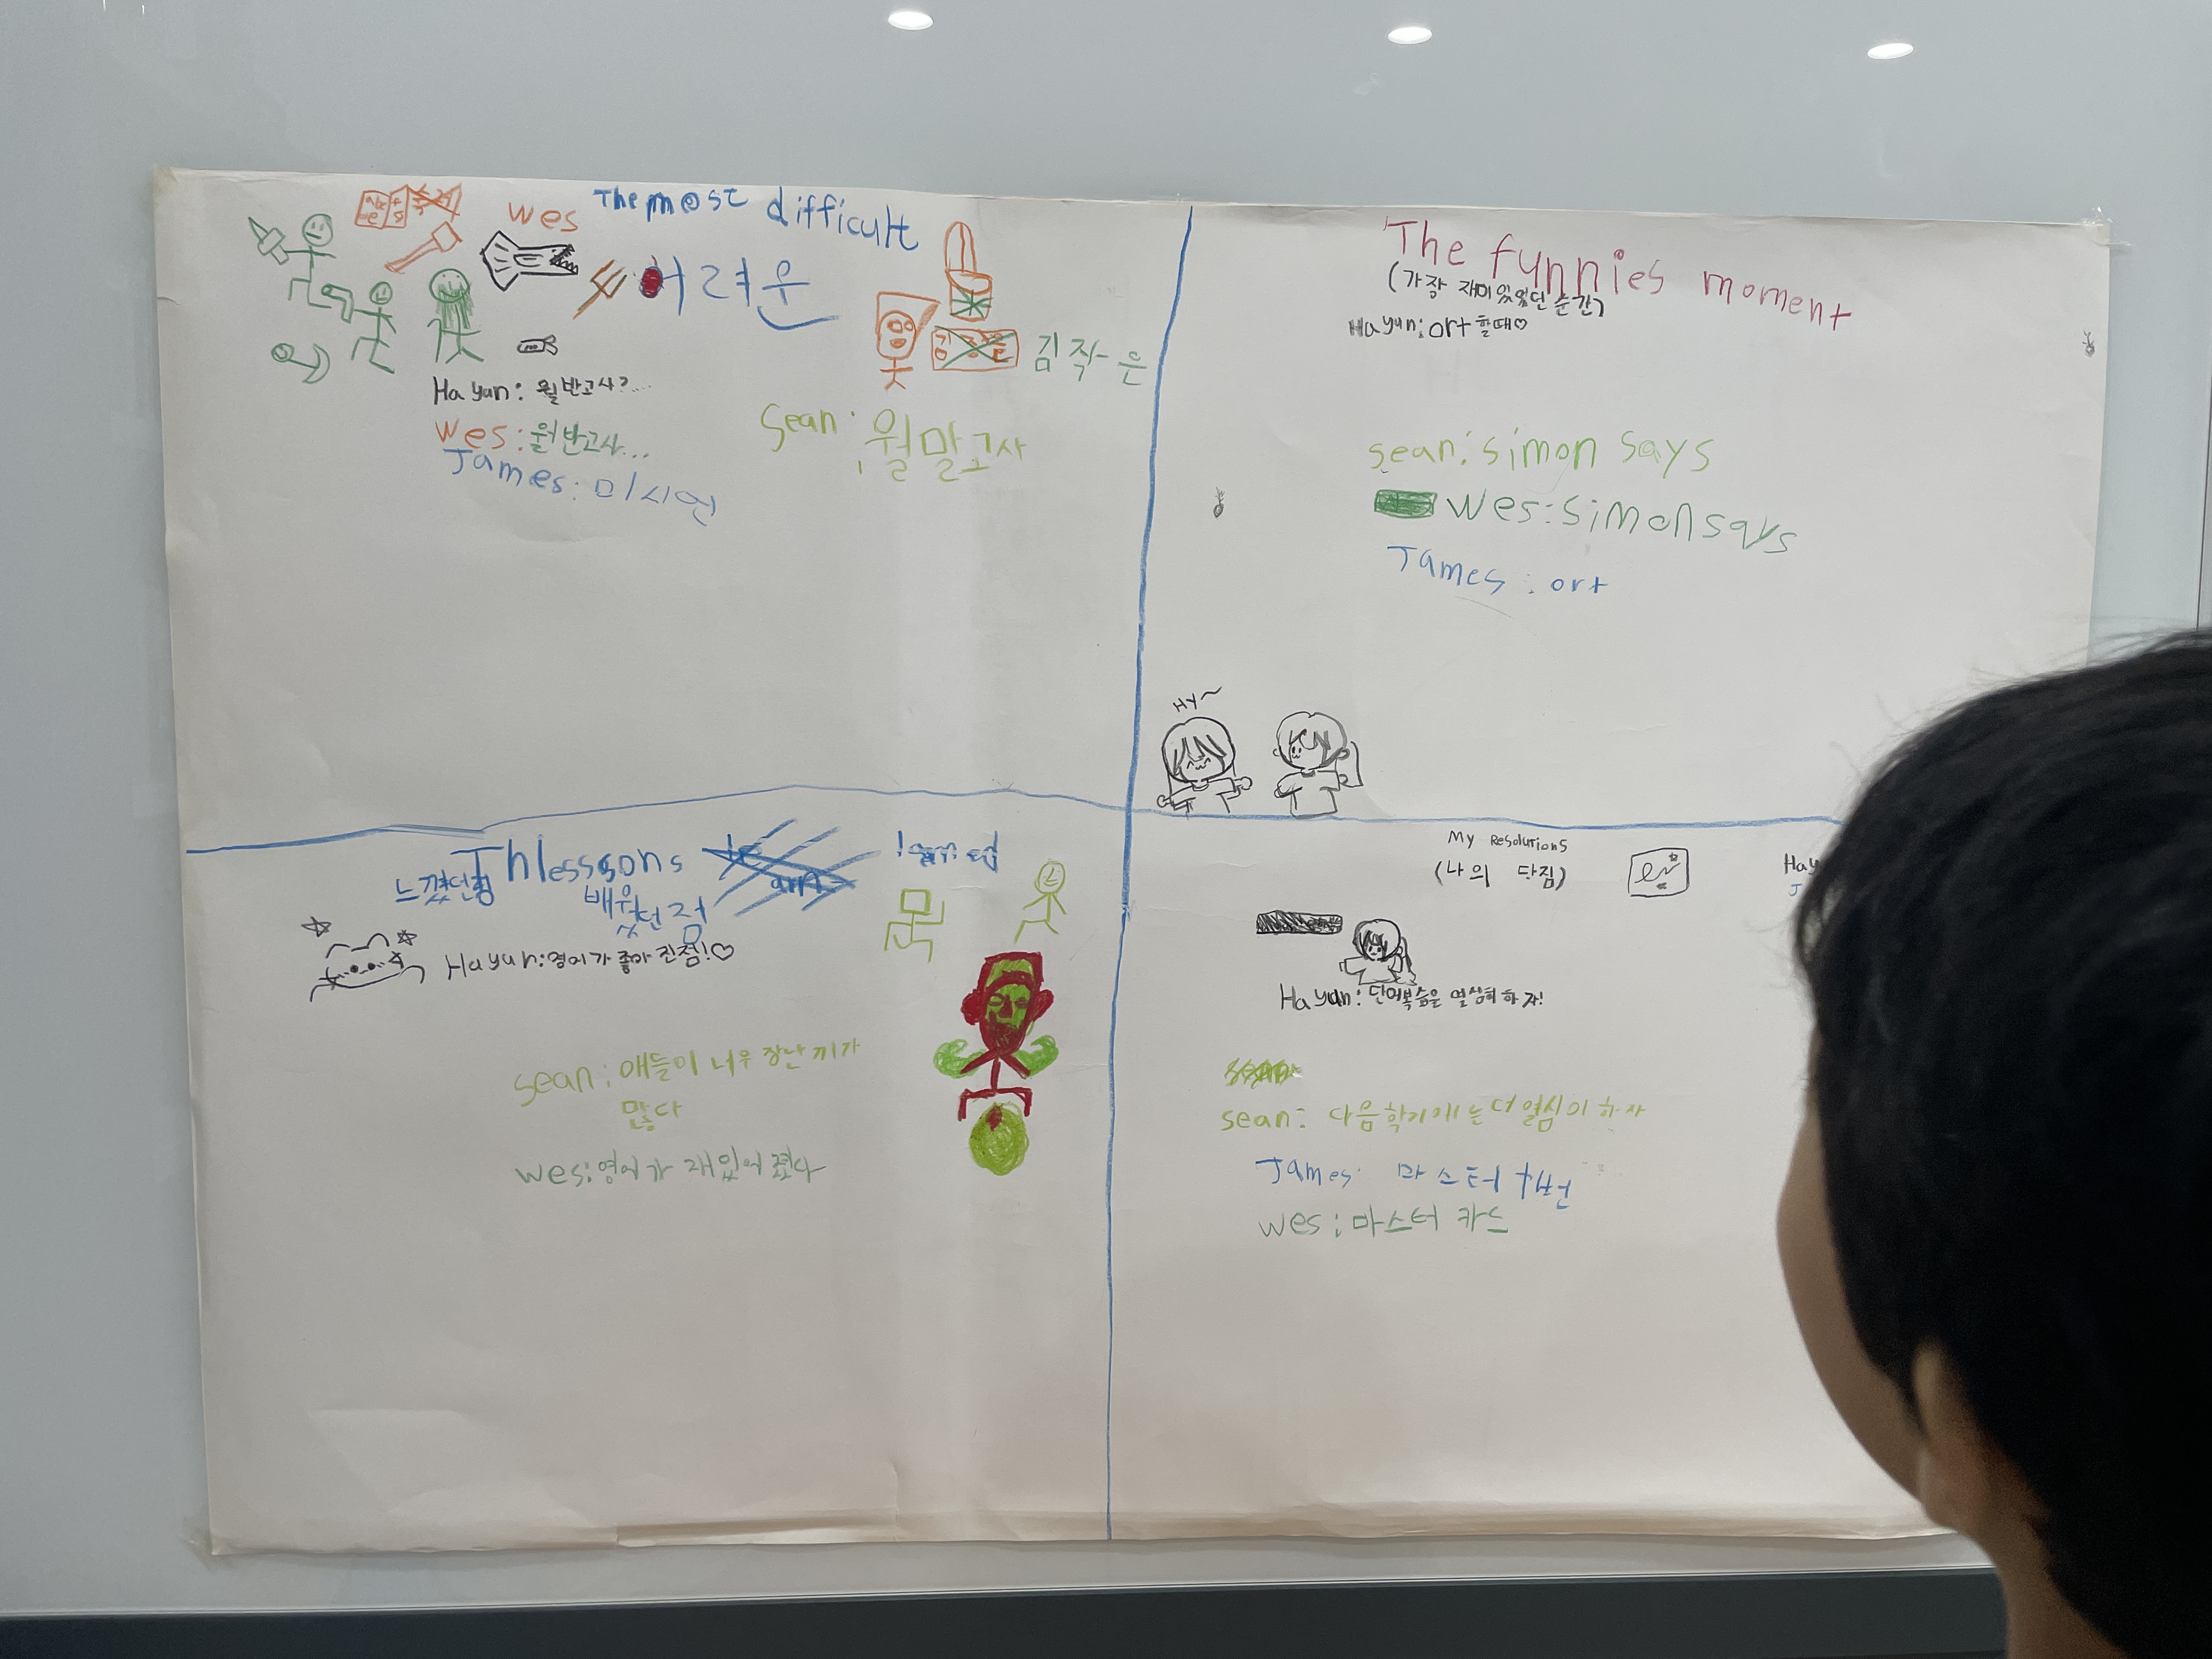 wes The most difficult
어려운
김작은
Ha yun: 월반고사?...
wes: 월반고사...
James: 미시연
Sean: 월말고사
The funnies moment
(가장 재미있었던 순간)
Ha yun: ort 할때♡
sean: simon says
wes: simon says
James: ort
HY~
Th lessons
느꼈던점
배웠던 점
Ha yun: 영어가 좋아 진점!♡
sean: 애들이 너무 장난끼가
많다
wes: 영어가 재있어졌다
My Resolutions
(나의 다짐)
Hay
J
Ha yun: 단어복습은 열심히 하자!
sean: 다음학기에는 더 열심이 하자
James: 마스터
wes: 마스터 카드